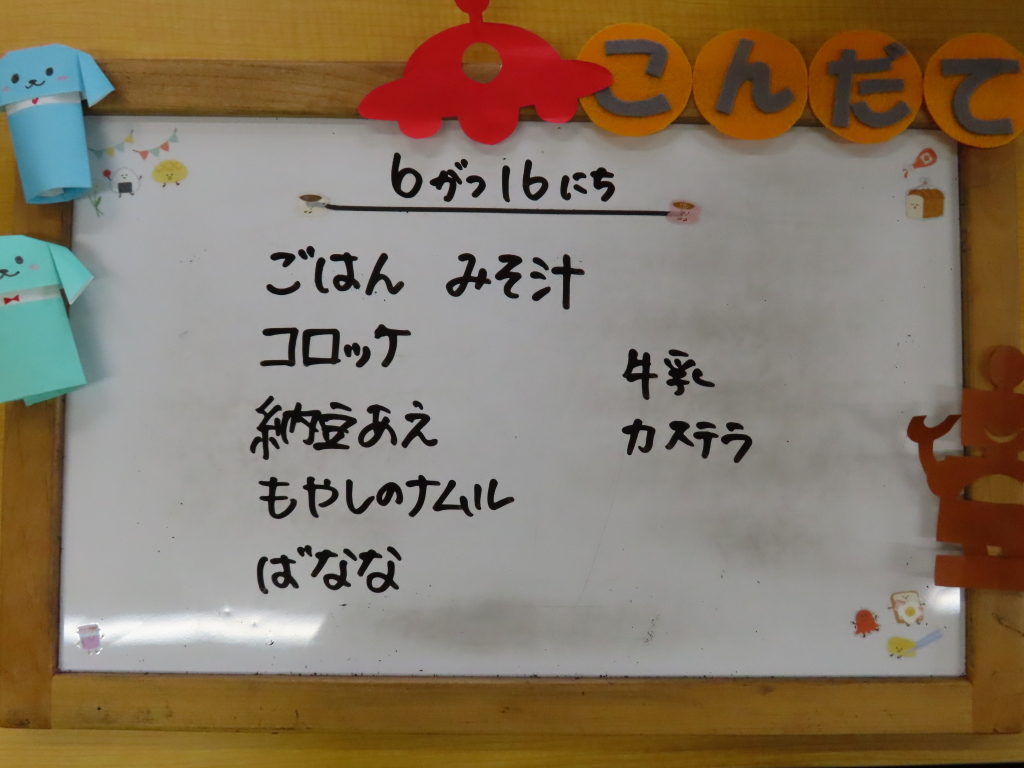 こんだて
6がつ16にち
ごはん みそ汁
コロッケ
納豆あえ
もやしのナムル
ばなな
牛乳
カステラ